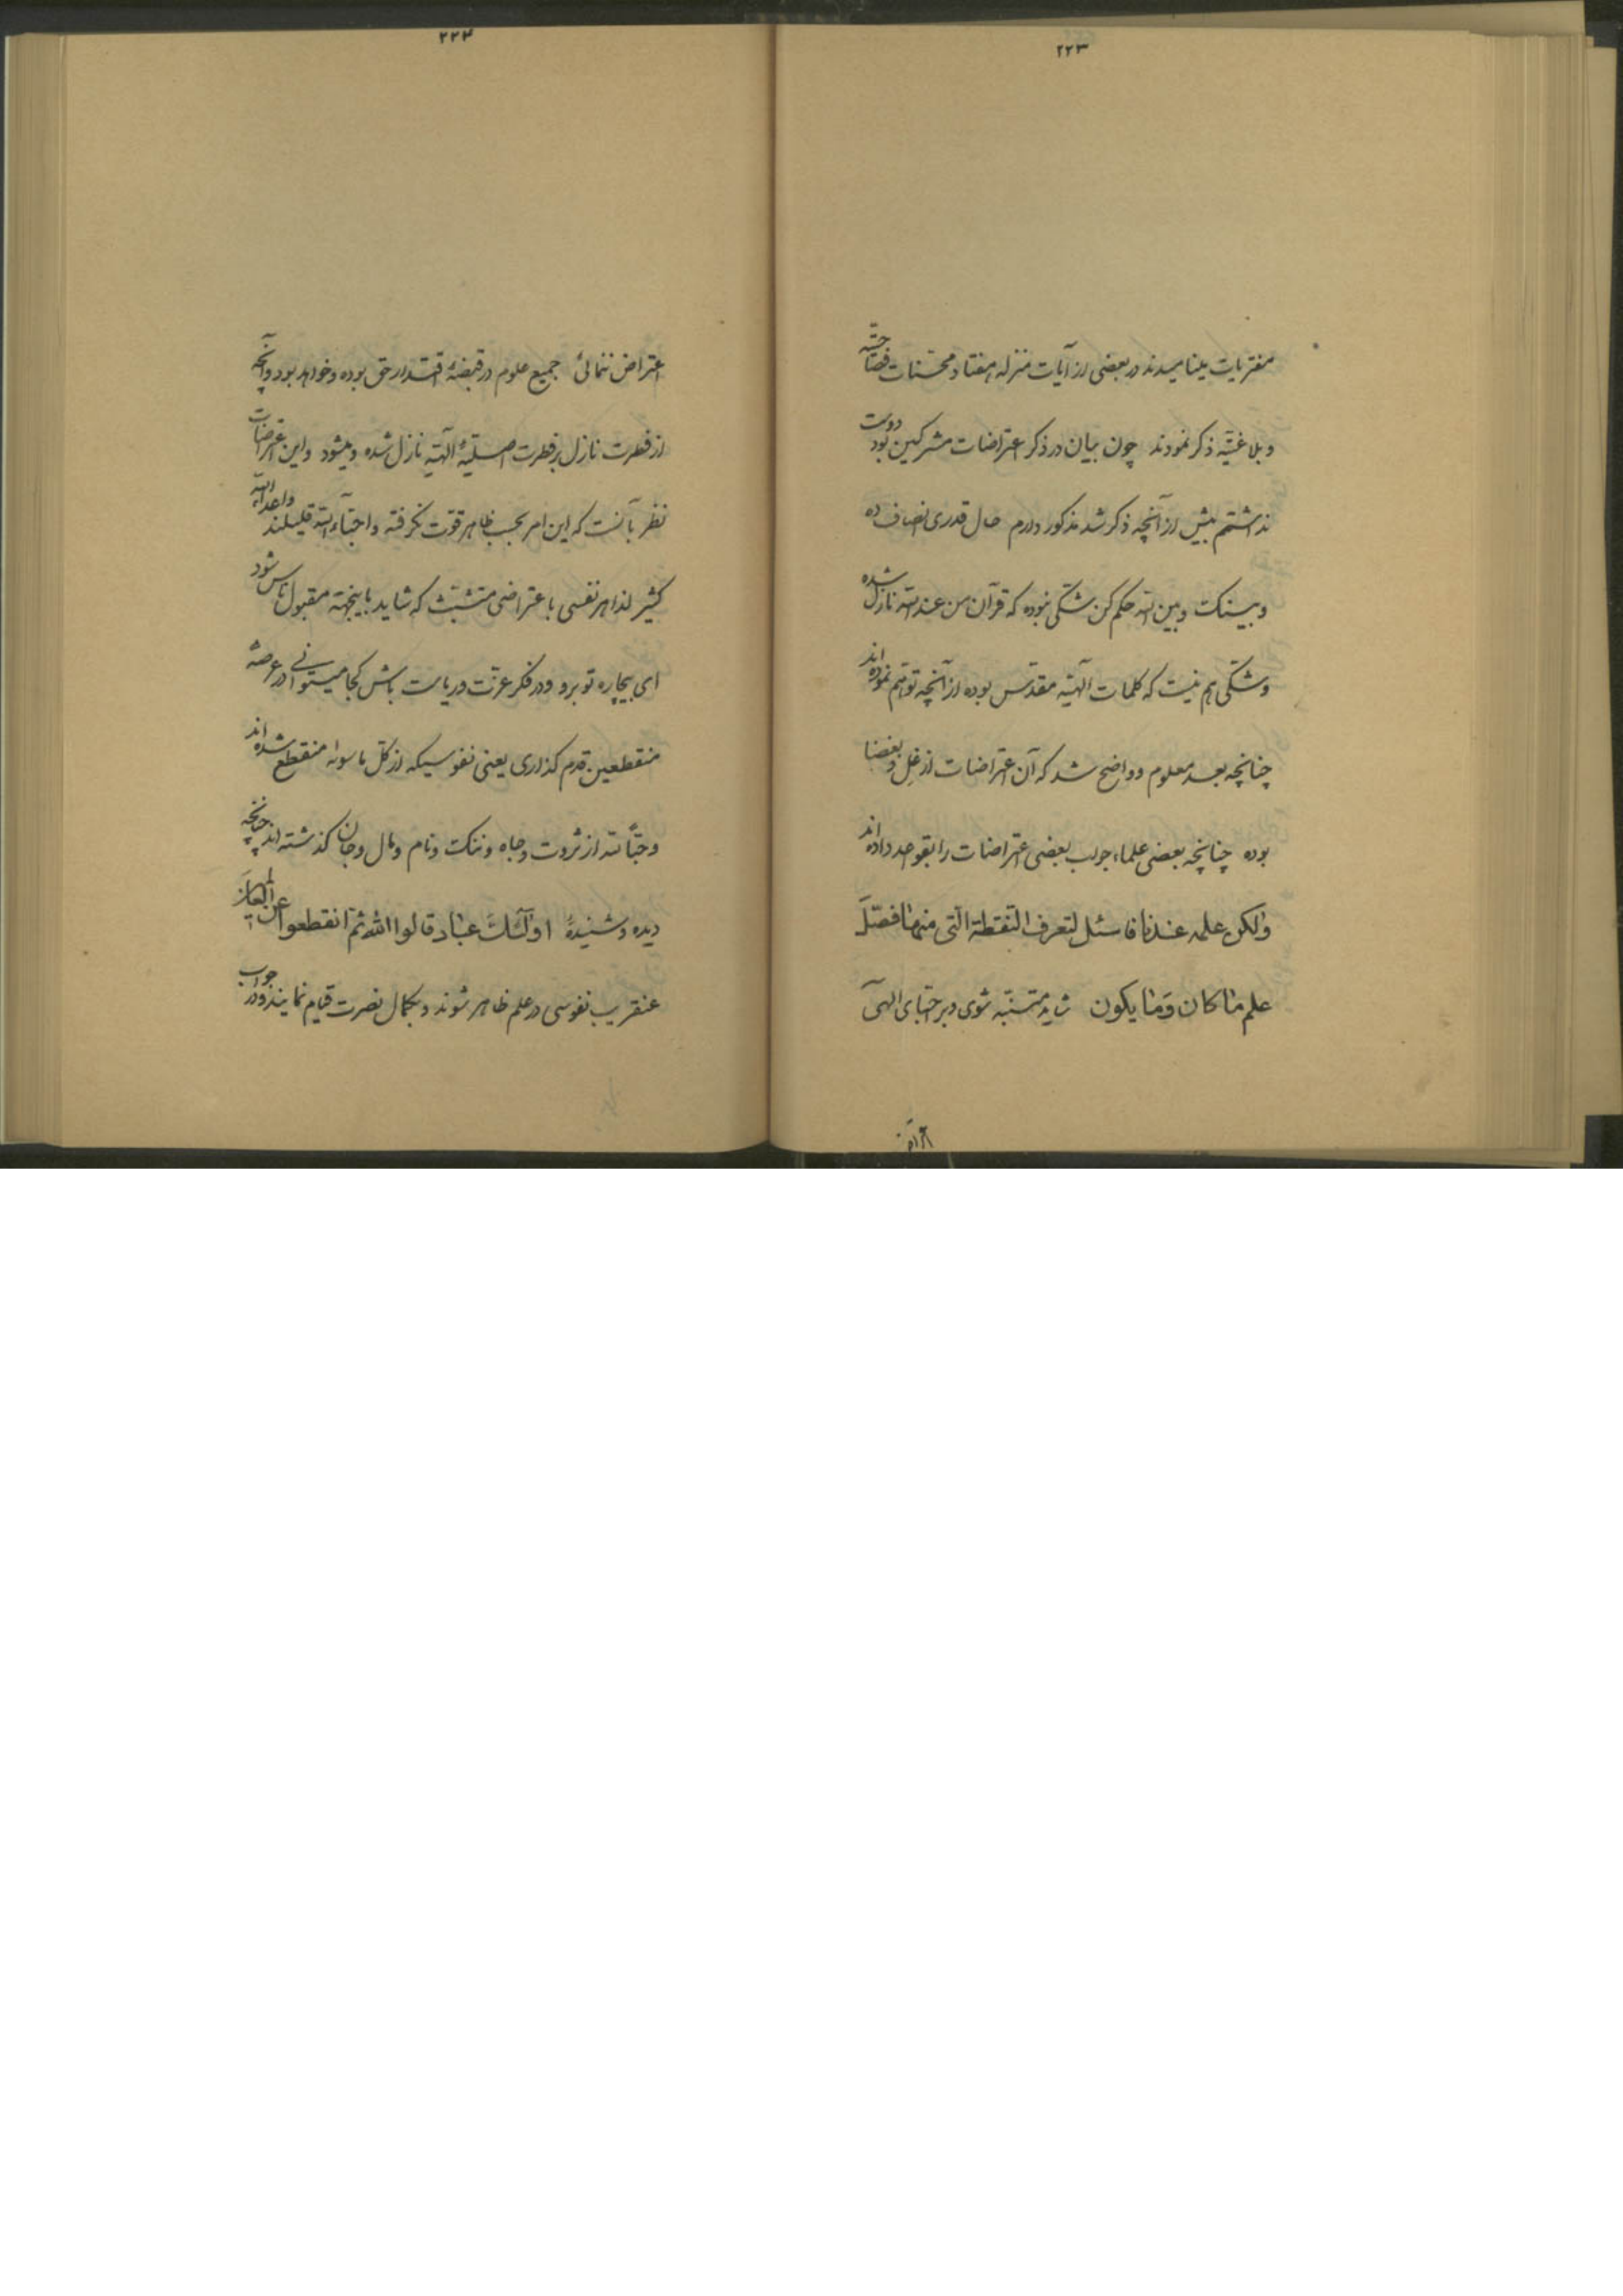 ٢٢٣
مفتریات مینامیدند در بعضی از آیات منزله هفتاد محسّنات فصاحتیّه
و بلاغتیّه ذکر نمودند چون بیان در ذکر اعتراضات مشرکین بود دوست
نداشتم بیش از آنچه ذکر شد مذکور دارم حال قدری انصاف ده
و بینک و بین الله حکم کن شکّی نبوده که قرآن من عند الله نازل شده
و شکّی هم نیست که کلمات الهیّه مقدّس بوده از آنچه توهّم نموده‌اند
چنانچه بعد معلوم و واضح شد که آن اعتراضات از غلّ و بغضا
بوده چنانچه بعضی علماء جواب بعضی اعتراضات را بقواعد داده‌اند
ولکن علمه عندنا فاسئل لتعرف النّقطة الّتی منها فصّل
علم ما کان و ما یکون شاید متنبّه شوی و بر احبّای الهی
٢٢٤
اعتراض ننمائی جمیع علوم در قبضهٔ اقتدار حق بوده و خواهد بود و آنچه
از فطرت نازل بر فطرت اصلیّهٔ الهیّه نازل شده و میشود و این اعتراضات
نظر بآنست که این امر بحسب ظاهر قوّت نگرفته و احبّاء الله قلیلند و اعداء الله
کثیر لذا هر نفسی باعتراضی متشبّث که شاید باینجهة مقبول ناس شود
ای بیچاره تو برو و در فکر عزّت و ریاست باش کجا میتوانی در عرصهٔ
منقطعین قدم گذاری یعنی نفوسیکه از کلّ ما سواه منقطع شده‌اند
و حبّاً لله از ثروت و جاه و ننگ و نام و مال و جان گذشته‌اند چنانچه
دیده و شنیدهٔ اولٰئک عباد قالوا الله ثمّ انقطعوا عن العالمین
عنقریب نفوسی در علم ظاهر شوند و بکمال نصرت قیام نمایند و در جواب